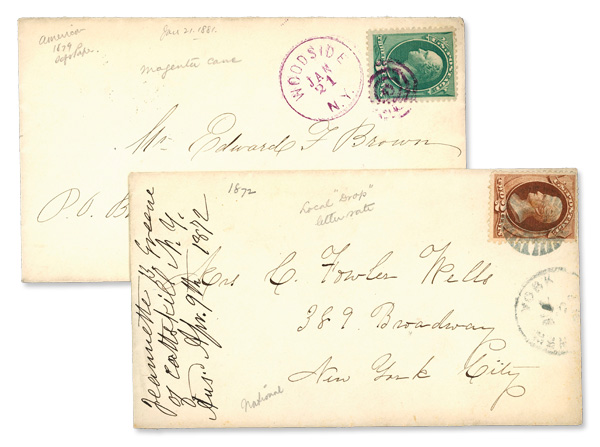 America
1879
Jan 21, 1881.
magenta canc
WOODSIDE
JAN
21
N.Y.
Mr Edward F Brown
P.O. B
1872
Local "Drop"
letter rate
Jeannette E. Greene
of Cattskill N.Y.
Ans. Apr. 9th 1872
Mrs C. Fowler Wells
389 Broadway
New York City
National
YORK